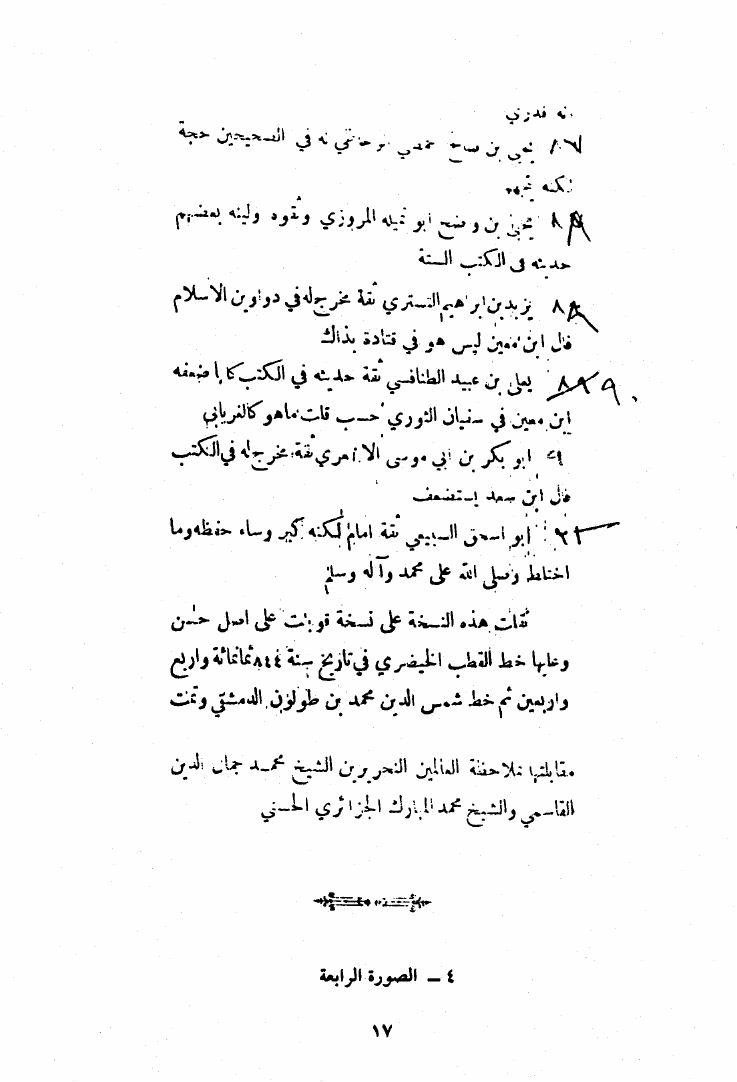 انه قدري
٨٧ يحيى بن صالح حمصي ثقة في الصحيحين حجة
لكنه تجهم
٨٨ يحيى بن واضح ابو تميله المروزي وثقوه ولينه بعضهم
حديثه في الكتب الستة
٨٩ يزيد بن ابراهيم التستري ثقة مخرج له في دواوين الاسلام
قال ابن معين ليس هو في قتادة بذاك
٩٠ يعلى بن عبيد الطنافسي ثقة حديثه في الكتب كلها ضعفه
ابن معين في سفيان الثوري حسب قلت ما هو كالفريابي
٩١ ابو بكر بن ابي موسى الاشعري ثقة مخرج له في الكتب
قال ابن سعد يستضعف
٩٢ ابو اسحق السبيعي ثقة امام لكنه كبر وساء حفظه وما
اختلط وصلى الله على محمد وآله وسلم
نقلت هذه النسخة على نسخة قوبلت على اصل حسن
وعليها خط القطب الخيضري في تاريخ سنة ٨٤٤ ثمانمائة واربع
واربعين ثم خط شمس الدين محمد بن طولون الدمشقي وتمت
مقابلتها بملاحظة العالمين النحريرين الشيخ محمد جمال الدين
القاسمي والشيخ محمد المبارك الجزائري الحسني
٤ – الصورة الرابعة
١٧